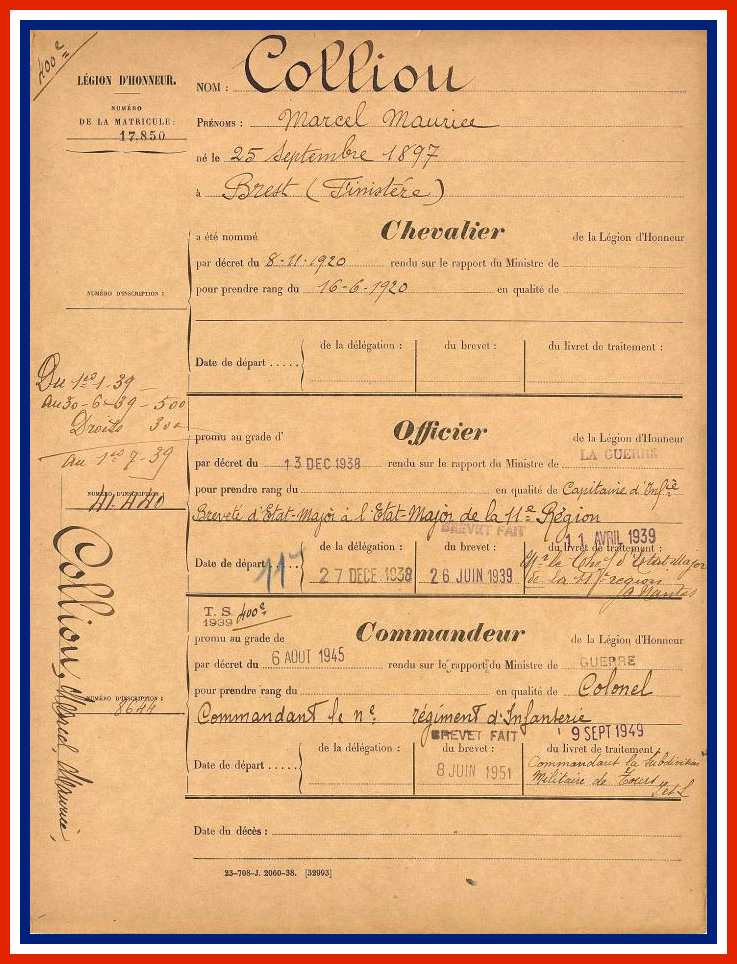 400e
LÉGION D'HONNEUR.
NUMÉRO
DE LA MATRICULE:
17.850
NOM : Colliou
PRÉNOMS : Marcel Maurice
né le 25 Septembre 1897
à Brest (Finistère)
a été nommé Chevalier de la Légion d'Honneur
par décret du 8-11-1920 rendu sur le rapport du Ministre de
NUMÉRO D'INSCRIPTION :
pour prendre rang du 16-6-1920 en qualité de
Date de départ ..... de la délégation : du brevet : du livret de traitement :
Du 1er-1-39
au 30-6-39 - 500
Droits 300
au 1er 7-39
promu au grade d' Officier de la Légion d'Honneur
par décret du 13 DEC 1938 rendu sur le rapport du Ministre de LA GUERRE
NUMÉRO D'INSCRIPTION :
41.440
pour prendre rang du en qualité de Capitaine d'Infie
Breveté d'Etat-Major à l'Etat-Major de la 11e Région
BREVET FAIT
11 AVRIL 1939
Date de départ de la délégation : du brevet : du livret de traitement :
27 DECE 1938 26 JUIN 1939
Mr le Chef d'Etat-Major
de la région
à Nantes
T. S. 400e
1939
promu au grade de Commandeur de la Légion d'Honneur
par décret du 6 AOUT 1945 rendu sur le rapport du Ministre de GUERRE
pour prendre rang du en qualité de Colonel
NUMÉRO D'INSCRIPTION :
8644
Commandant le ne régiment d'Infanterie
BREVET FAIT
9 SEPT 1949
Date de départ ..... de la délégation : du brevet : du livret de traitement :
8 JUIN 1951
Commandant la subdivision
Militaire de Tours
Colliou, Marcel, Maurice,
Date du décès :
23-708-J. 2060-38. [32993]